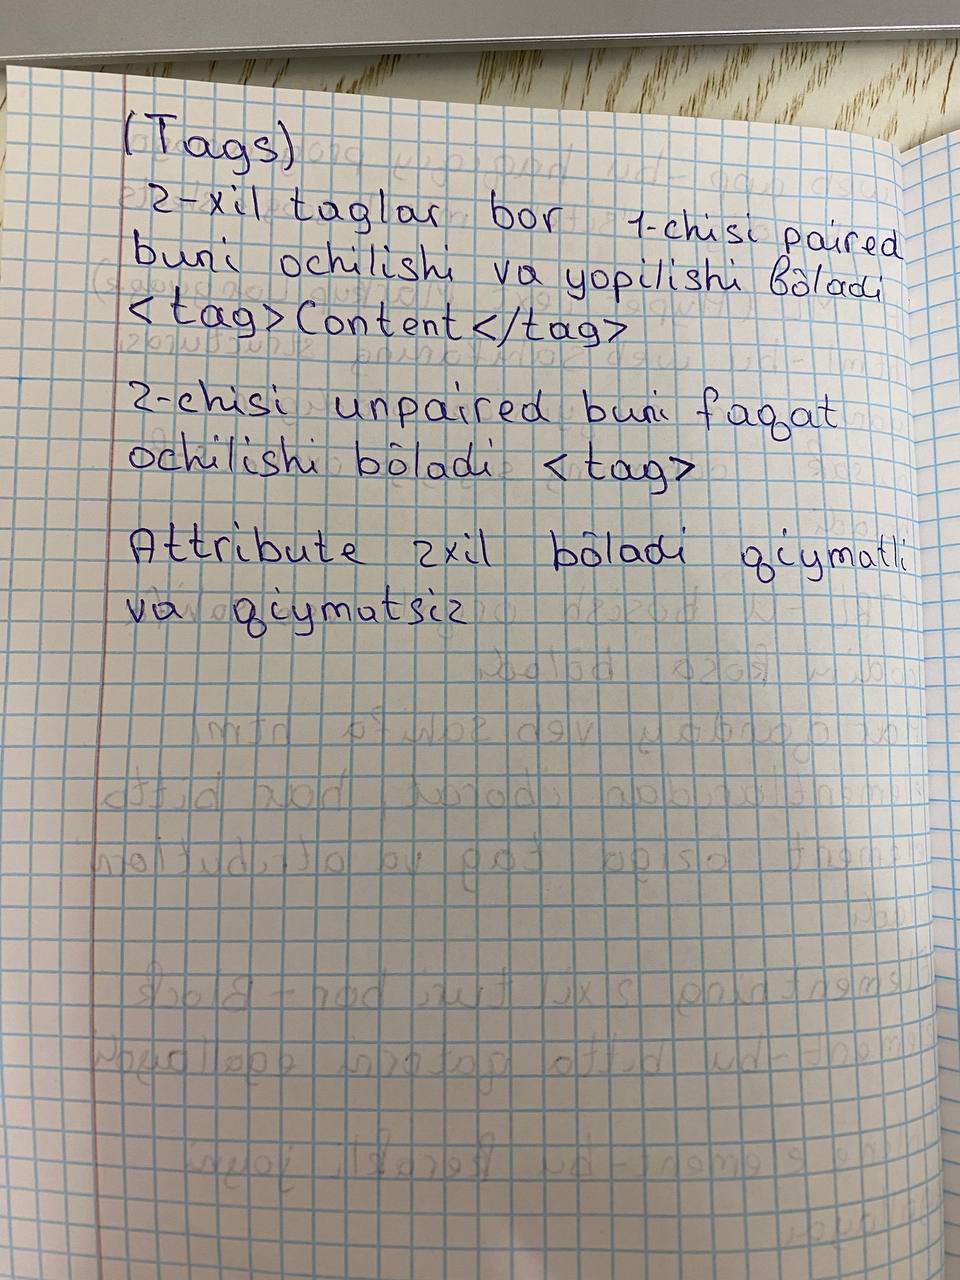 (Tags)
2-xil taglar bor 1-chisi paired
buni ochilishi va yopilishi bôladi
<tag>Content</tag>
2-chisi unpaired buni faqat
ochilishi bôladi <tag>
Attribute 2xil bôladi qiymatli
va qiymatsiz